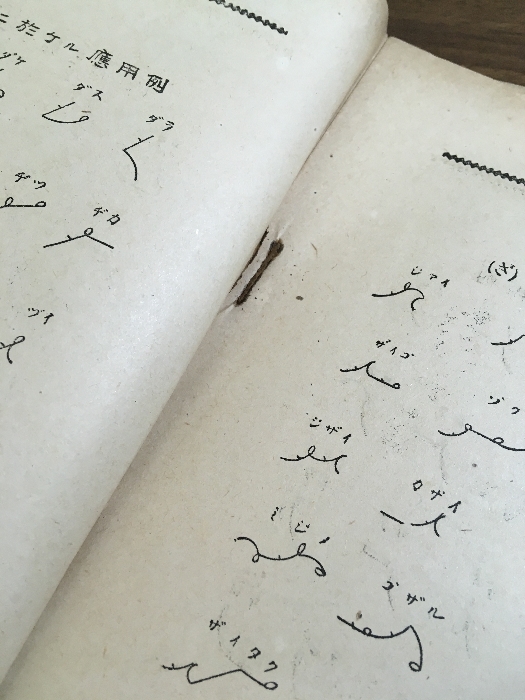 ニ於ケル應用例
ダラ
ダス
ダケ
ヂカ
ヂツ
ヅイ
(ざ)
ロザイ
ゴザル
ザイゴ
ジザイ
ミジン
ザイタク